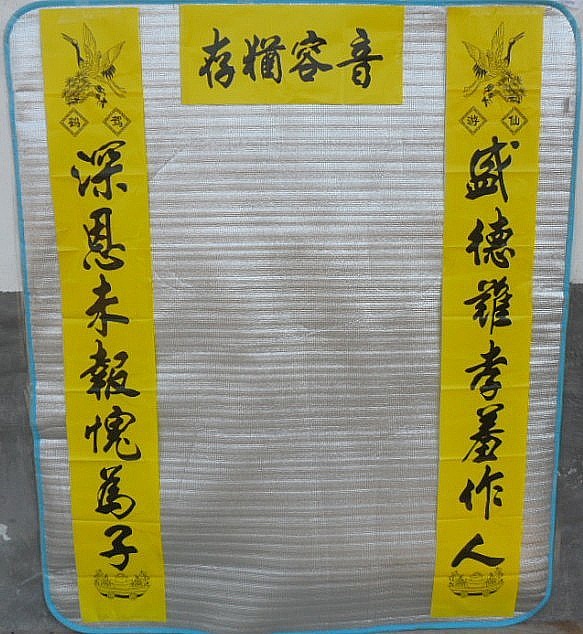 音容猶存
仙游
盛德難孝羞作人
驾鹤
深恩未報愧為子